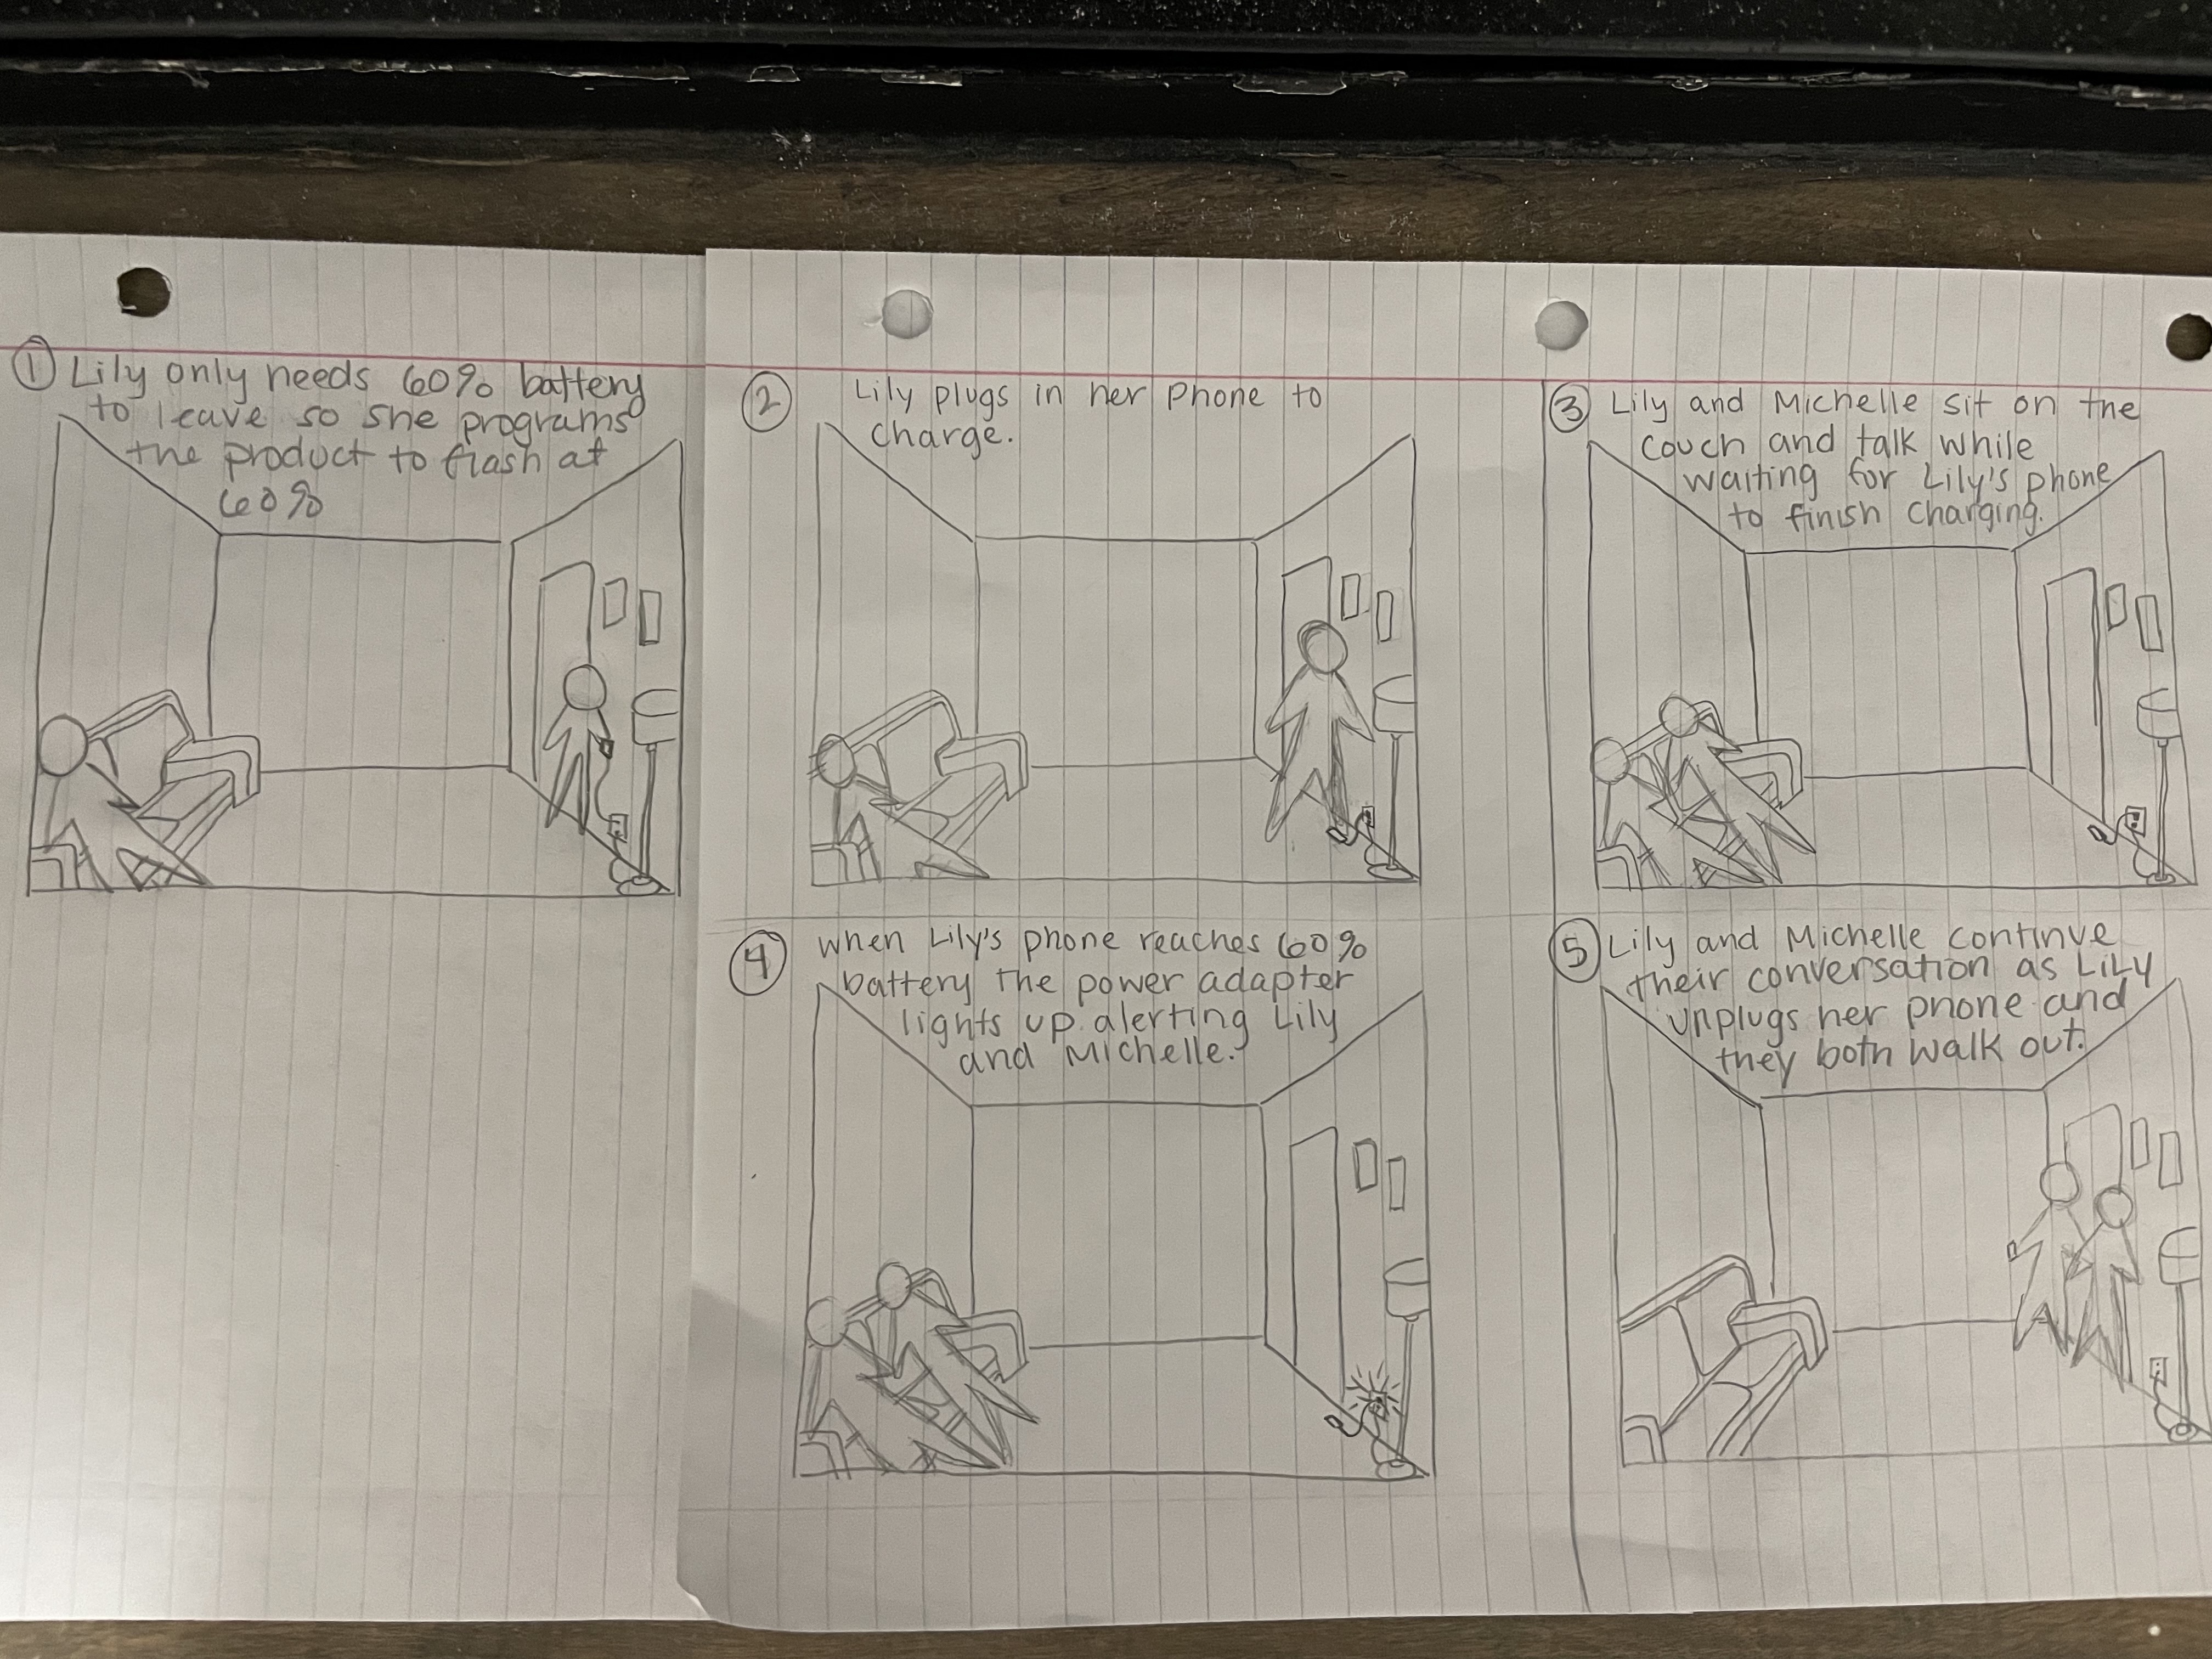 ① Lily only needs 60% battery
to leave so she programs
the product to flash at
60%
② Lily plugs in her phone to
charge.
③ Lily and Michelle sit on the
couch and talk while
waiting for Lily's phone
to finish charging.
④ when Lily's phone reaches 60%
battery the power adapter
lights up alerting Lily
and Michelle.
⑤ Lily and Michelle continue
their conversation as LiLy
unplugs her phone and
they both walk out.